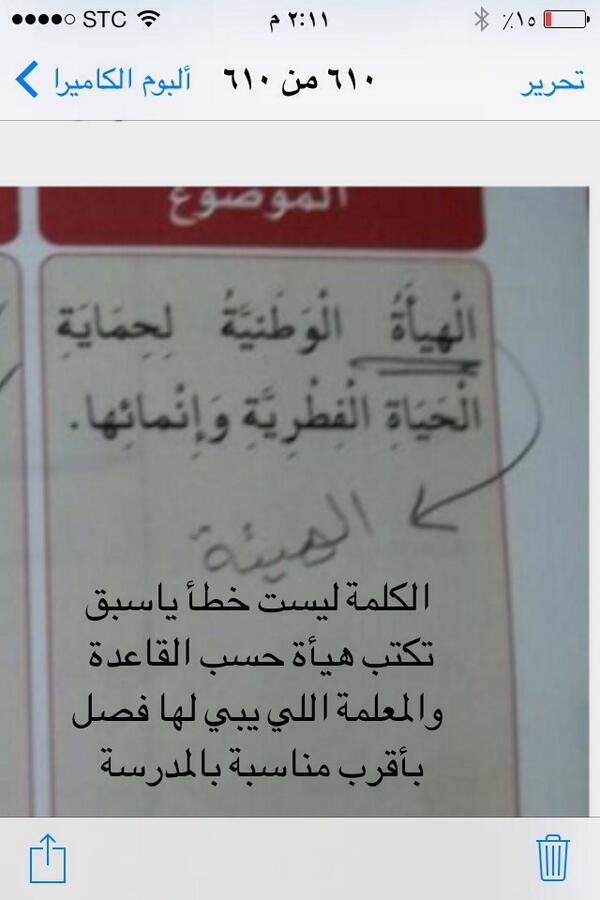 STC ٢:١١ م ٪١٥
ألبوم الكاميرا ٦١٠ من ٦١٠ تحرير
الموضوع
الْهيأَةُ الْوَطَنيَّةُ لِحِمَايَةِ
الْحَيَاةِ الْفِطْرِيَّةِ وَإِنْمائِها.
الهيئة
الكلمة ليست خطأ ياسبق
تكتب هيأة حسب القاعدة
والمعلمة اللي يبي لها فصل
بأقرب مناسبة بالمدرسة